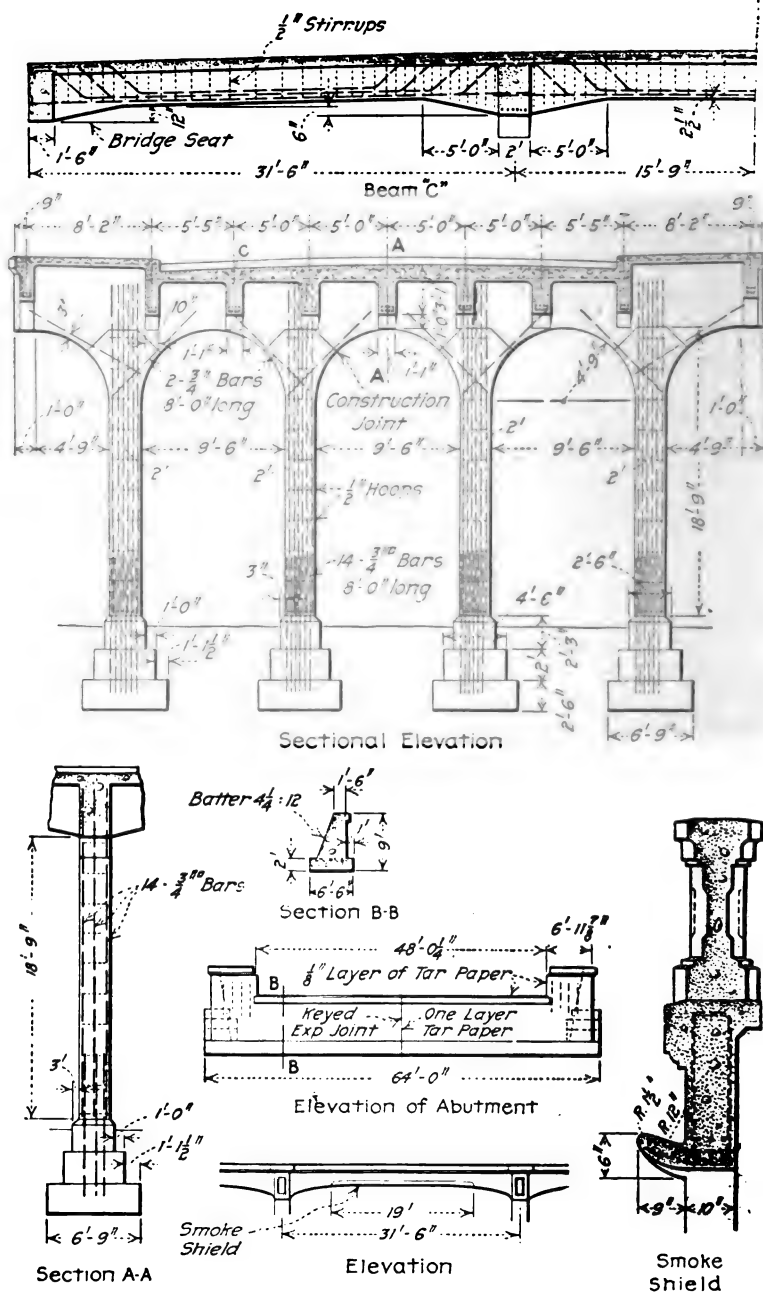 1/2" Stirrups
12"
Bridge Seat
6"
2 1/2"
1'-6"
5'-0" 2' 5'-0"
31'-6" 15'-9"
Beam "C"
9" 8'-2" 5'-5" 5'-0" 5'-0" 5'-0" 5'-0" 5'-5" 8'-2" 9"
C A
10"
1'-1" A 1'-1"
2-3/4" Bars
8'-0" long
Construction
Joint
4'-9"
1'-0" 1'-0"
4'-9" 9'-6" 9'-6" 9'-6" 4'-9"
2' 2' 2' 2'
1/2" Hoops
18'-9"
3" 14-3/4"□ Bars
8'-0" long
2'-6"
1'-0" 4'-6"
1'-1 1/2" 2' 2'-3"
2'-6"
6'-9"
Sectional Elevation
1'-6"
Batter 4 1/4 : 12
1'
9'
2'
6'-6"
Section B-B
14-3/4"□ Bars
18'-9"
3'
1'-0"
1'-1 1/2"
6'-9"
Section A-A
6'-11 7/8"
48'-0 1/4"
1/8" Layer of Tar Paper
B
Keyed One Layer
Exp Joint Tar Paper
B
64'-0"
Elevation of Abutment
19'
Smoke
Shield
31'-6"
Elevation
R. 12"
6"
9" 10"
Smoke
Shield